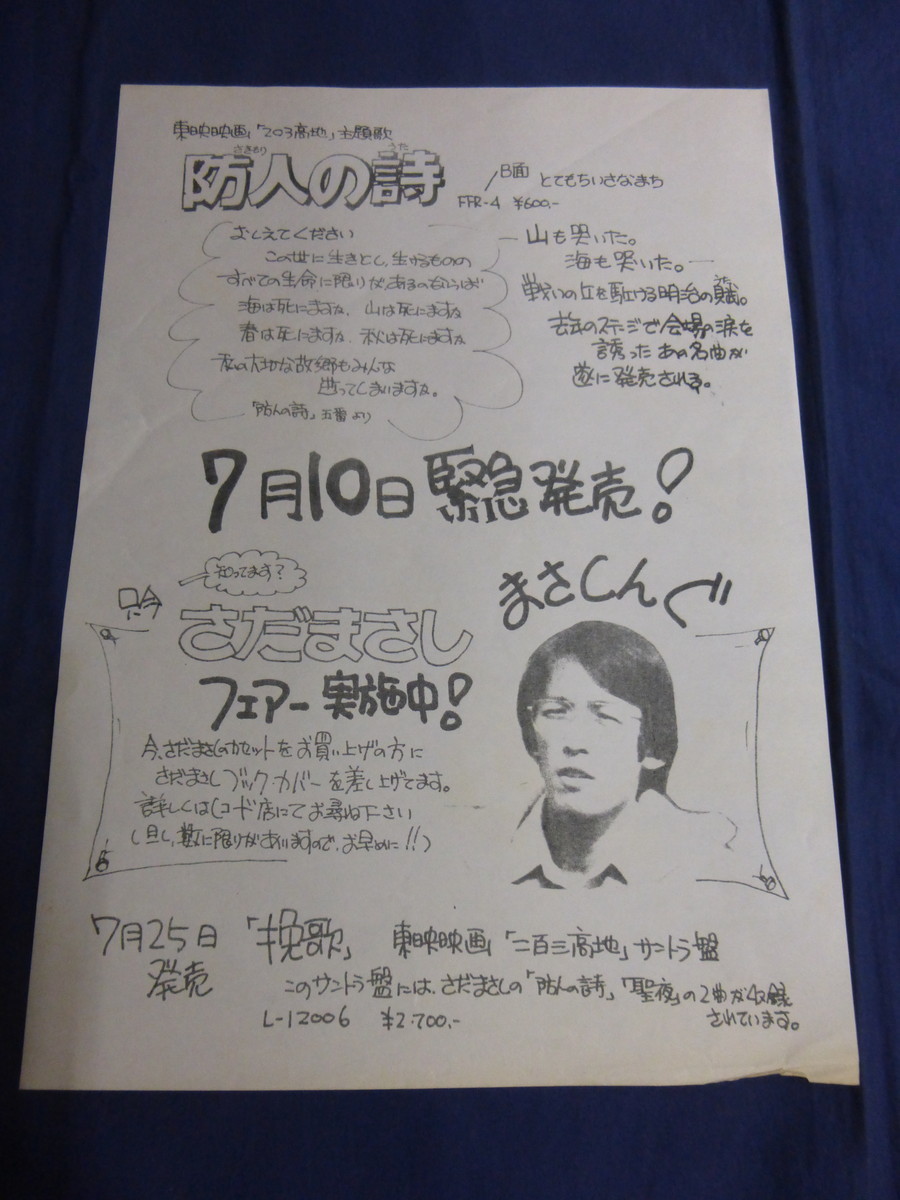 東映映画「203高地」主題歌
さきもり うた
防人の詩
B面 とてもちいさなまち
FFR-4 ¥600.-
おしえてください
この世に生きとし、生けるものの
すべての生命に限りが、あるのならば
海は死にますか、山は死にますか
春は死にますか、秋は死にますか
私の大切な故郷もみんな
逝ってしまいますか。
「防人の詩」五番より
— 山も哭いた。
海も哭いた。—
うた
戦いの丘を駈ける明治の賦。
去年のステージで会場の涙を
誘ったあの名曲が
遂に発売される。
7月10日緊急発売!
知ってます?
只今
さだまさし
フェアー実施中!
まさしんぐ
今、さだまさしのカセットをお買い上げの方に
さだまさしブックカバーを差し上げてます。
詳しくはレコード店にてお尋ね下さい
(但し、数に限りがありますので、お早めに!!)
7月25日
発売
「挽歌」 東映映画「二百三高地」サントラ盤
このサントラ盤には、さだまさしの「防人の詩」「聖夜」の2曲が収録
されています。
L-12006 ¥2.700.-